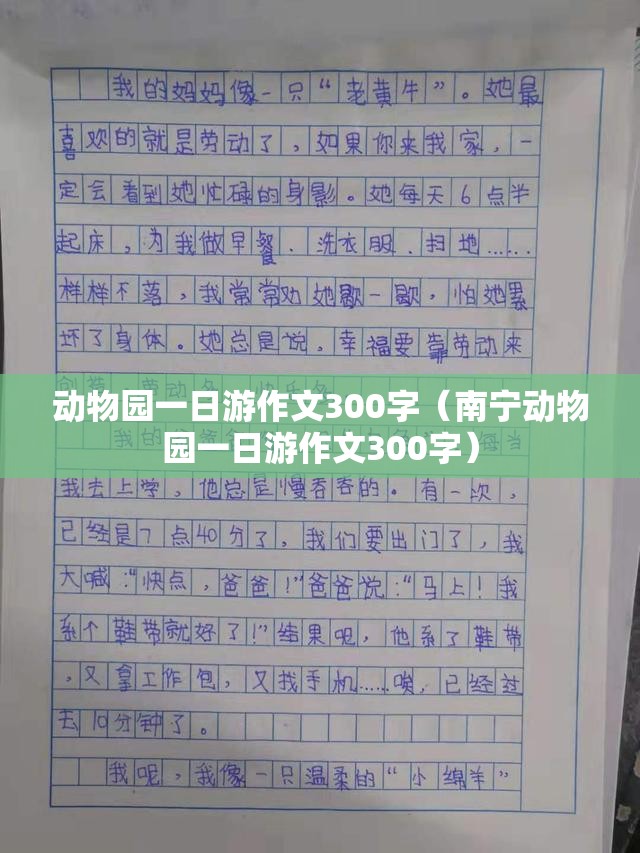 我的妈妈像一只“老黄牛”。她最
喜欢的就是劳动了，如果你来我家，一
定会看到她忙碌的身影。她每天6点半
起床，为我做早餐、洗衣服、扫地……
样样不落，我常常劝她歇一歇，怕她累
坏了身体。她总是说，幸福要靠劳动来
动物园一日游作文300字（南宁动物
园一日游作文300字）
我去上学，他总是慢吞吞的。有一次，
已经是7点40分了，我们要出门了，我
大喊：“快点，爸爸！”爸爸说：“马上！我
系个鞋带就好了！”结果呢，他系了鞋带
，又拿工作包，又找手机……唉，已经过
去10分钟了。
我呢，我像一只温柔的“小绵羊”